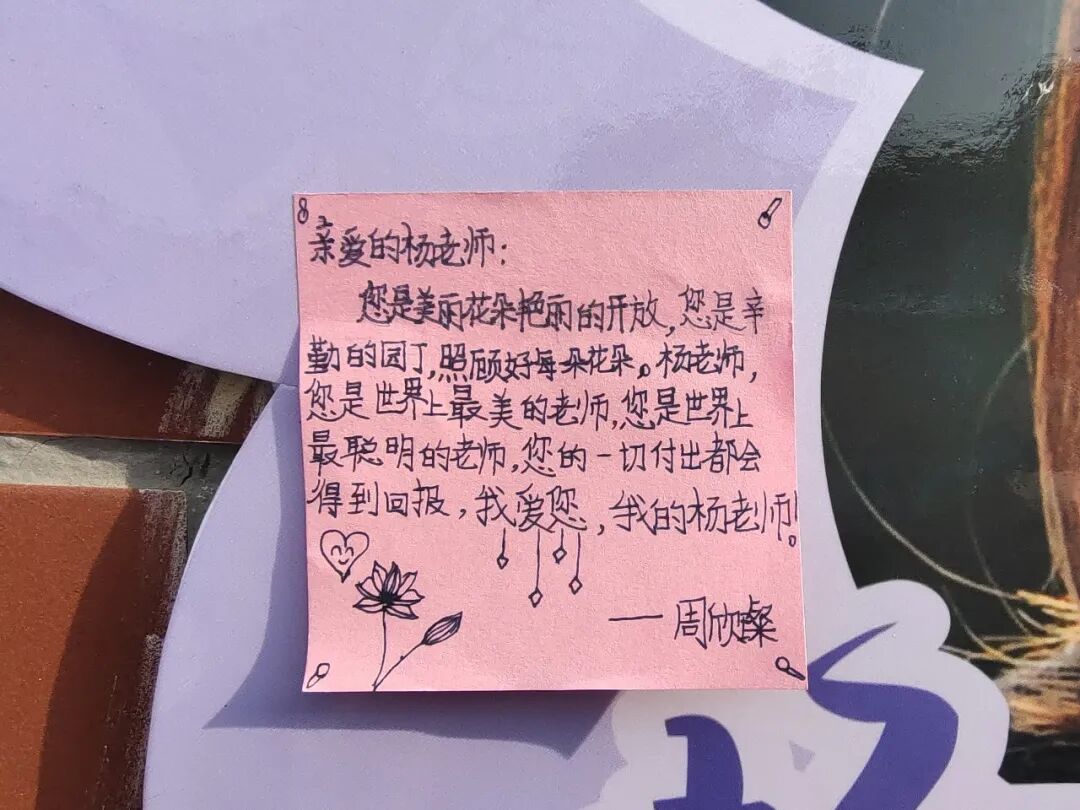 亲爱的杨老师：
您是美丽花朵艳丽的开放，您是辛
勤的园丁，照顾好每朵花朵。杨老师，
您是世界上最美的老师，您是世界上
最聪明的老师，您的一切付出都会
得到回报，我爱您，我的杨老师！
——周欣璨